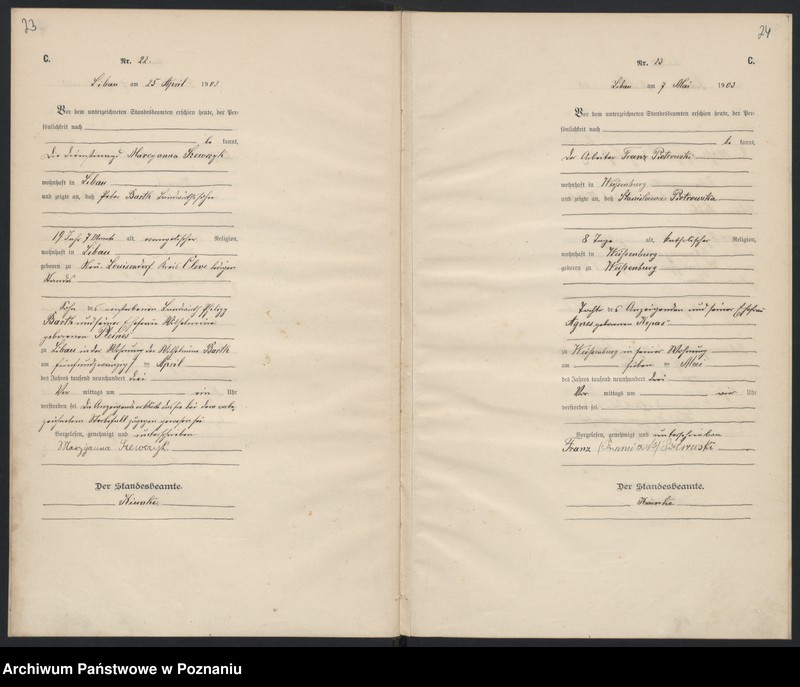 23
C.
Nr. 22.
Libau am 25 April 1903
Vor dem unterzeichneten Standesbeamten erschien heute, der Per-
sönlichkeit nach
be kannt,
die Dienstmagd Maryanna Szewczyk
wohnhaft in Libau
und zeigte an, daß Peter Barth Landwirthssohn
19 Jahr 7 Monate alt, evangelischer Religion,
wohnhaft in Libau
geboren zu Neu Louisendorf Kreis Cleve
Standes
Sohn des verstorbenen Landwirth Philipp
Barth und seiner Ehefrau Wilhelmine
geborenen
zu Libau in der Wohnung der Wilhelmine Barth
am fünfundzwanzigsten April
des Jahres tausend neunhundert drei
Vor mittags um ein Uhr
verstorben sei. die Anzeigende erklärt daß sie bei dem vorbe-
zeichneten Sterbefall zugegen gewesen sei
Vorgelesen, genehmigt und unterschrieben
Maryjanna Szewczyk
Der Standesbeamte.
24
Nr. 23
C.
Libau am 7 Mai 1903
Vor dem unterzeichneten Standesbeamten erschien heute, der Per-
sönlichkeit nach
be kannt,
der Arbeiter Franz Piotrowski
wohnhaft in Weissenburg
und zeigte an, daß Stanislawa Piotrowska
8 Tage alt, katholischer Religion,
wohnhaft in Weissenburg
geboren zu Weissenburg
Tochter des Anzeigenden und seiner Ehefrau
Agnes geborenen
zu Weissenburg in seiner Wohnung
am sieben Mai
des Jahres tausend neunhundert drei
Vor mittags um vier Uhr
verstorben sei.
Vorgelesen, genehmigt und unterschrieben
Franz Piotrowski
Der Standesbeamte.
Archiwum Państwowe w Poznaniu